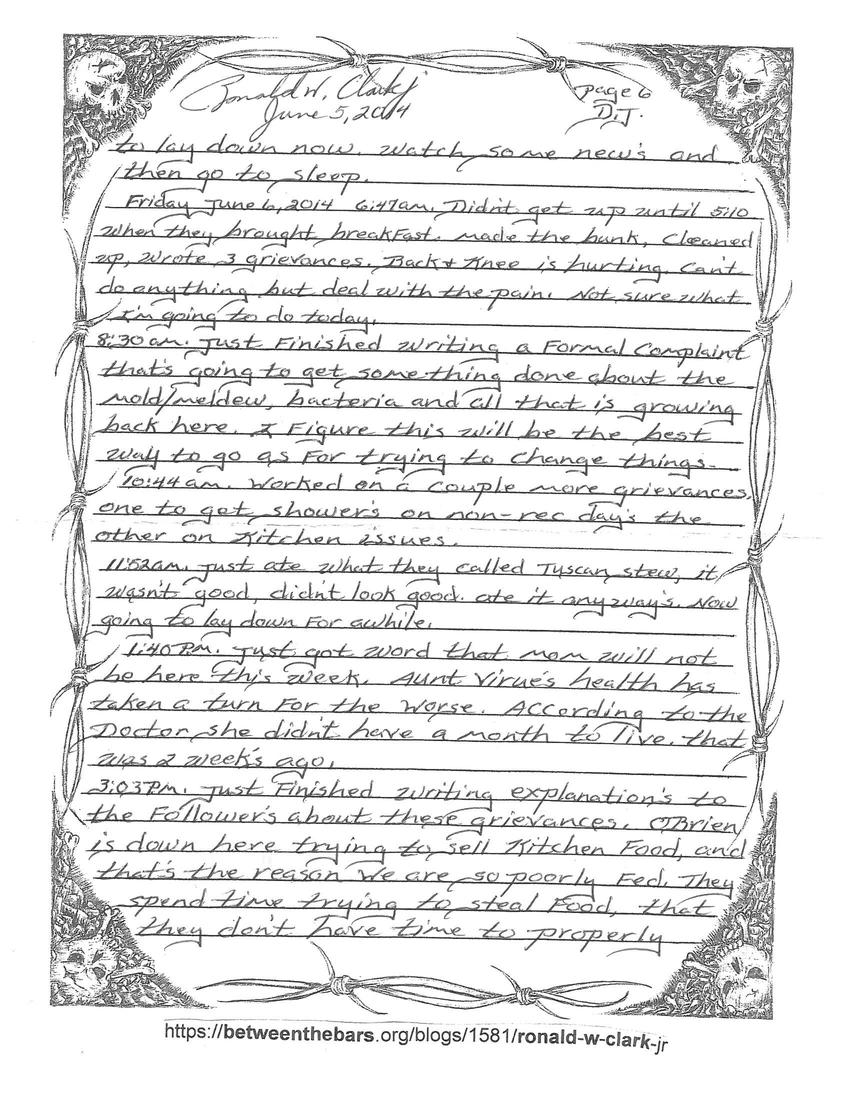 Ronald W. Clark Jr page 6
June 5, 2014 D.J.
to lay down now. Watch some new's and
then go to sleep.
Friday June 6, 2014 6:47am. Didn't get up until 5:10
when they brought breakFast. Made the bunk, Cleaned
up, wrote 3 grievances. Back & Knee is hurting. Can't
do anything but deal with the pain. Not sure what
I'm going to do today.
8:30am. Just Finished writing a Formal Complaint
that's going to get something done about the
mold/meldew, bacteria and all that is growing
back here. I Figure this will be the best
way to go as For trying to change things.
10:44am. Worked on a couple more grievances,
one to get shower's on non-rec day's the
other on Kitchen issues.
11:52am. Just ate what they called Tuscan stew, it
wasn't good, didn't look good. ate it anyway's. Now
going to lay down For awhile.
1:40P.M. Just got word that mom will not
be here this week. Aunt Virue's health has
taken a turn For the worse. According to the
Doctor she didn't have a month to live. that
was 2 week's ago.
3:03P.M. Just Finished writing explanation's to
the Follower's about these grievances. O'Brien
is down here trying to sell Kitchen Food, and
that's the reason we are so poorly Fed. They
spend time trying to steal Food, that
they don't have time to properly
https://betweenthebars.org/blogs/1581/ronald-w-clark-jr